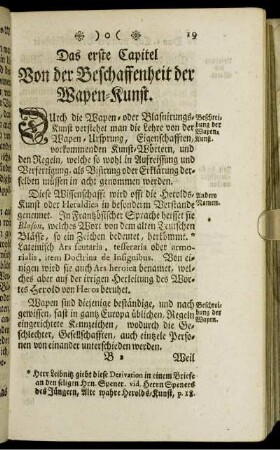 )o( 19
Das erste Capitel
Von der Beschaffenheit der
Wapen-Kunst.
Durch die Wapen- oder Blasnirungs-
Kunst verstehet man die Lehre von der
Wapen-Ursprung, Eigenschafften,
vorkommenden Kunst-Wörtern, und
den Regeln, welche so wohl in Aufreissung und
Verfertigung, als Visirung oder Erklärung der-
selben müssen in acht genommen werden.
Beschrei-
bung der
Wapen-
Kunst.
Diese Wissenschafft wird offt die Herolds-
Kunst oder Heraldica in besonderm Verstande
genennet. In Frantzösischer Sprache heisset sie
Blason, welches Wort von dem alten Teutschen
Blässe, so ein Zeichen bedeutet, herkömmt. *
Lateinisch Ars scutaria, tesseraria oder armo-
rialis, item Doctrina de Insignibus. Von ei-
nigen wird sie auch Ars heroica benamet, wel-
ches aber auf der irrigen Herleitung des Wor-
tes Herold von Heros beruhet.
Andere
Namen.
Wapen sind diejenige beständige, und nach
gewissen, fast in gantz Europa üblichen, Regeln
eingerichtete Kennzeichen, wodurch die Ge-
schlechter, Gesellschafften, auch eintzele Perso-
nen von einander unterschieden werden.
Beschrei-
bung der
Wapen.
B 2 Weil
* Herr Leibnitz giebt diese Derivation in einem Briefe
an den seligen Hrn. Spener. vid. Herrn Speners
des Jüngern, Alte wahre Herolds-Kunst, p. 18.